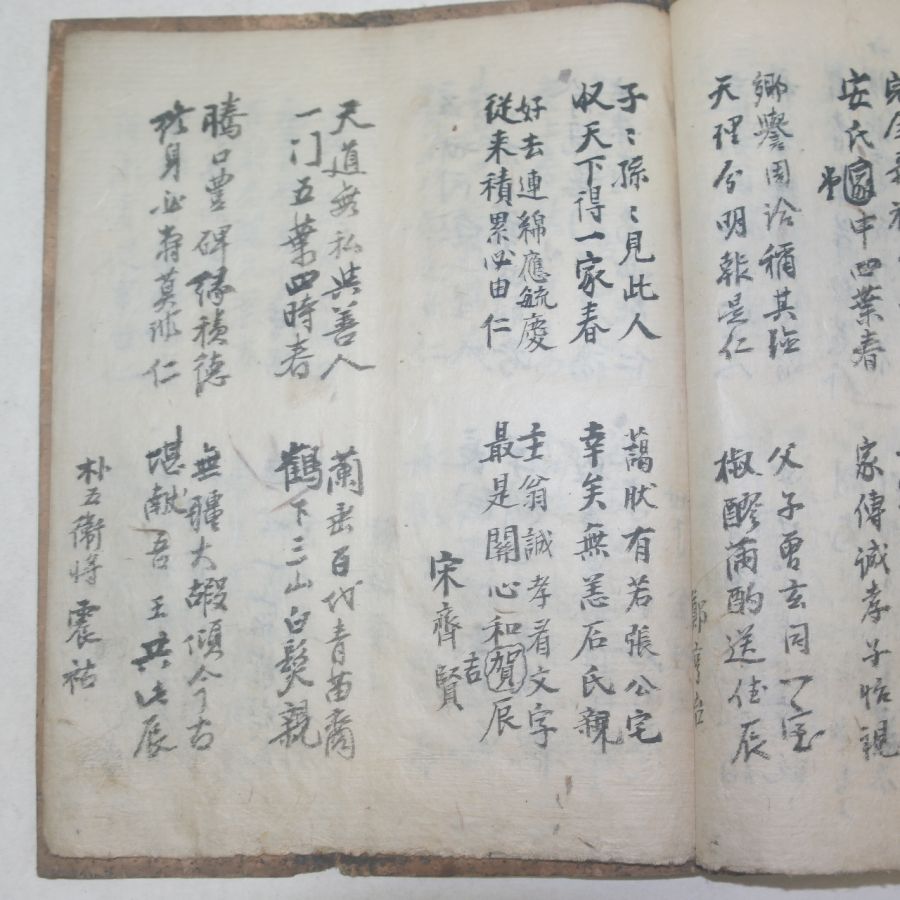 安氏家堂中四葉春
家傳誠孝子怡親
鄉譽周洽稱其
天理分明報是仁
父子曾玄同一室
椒醪滿酌送佳辰
鄭亨治
子〻孫〻見此人
収天下得一家春
藹肰有若張公宅
幸矣無恙石氏親
好去連綿應毓慶
從来積累必由仁
主翁誠孝看文字
最是關心和賀吉辰
宋齊賢
天道無私共善人
一门五葉四時春
蘭垂百代青苗裔
鶴下三山白髮親
騰口豊碑緣積德
修身必壽莫非仁
無疆大嘏傾今古
堪献吾王共此辰
朴五衛將 震祐